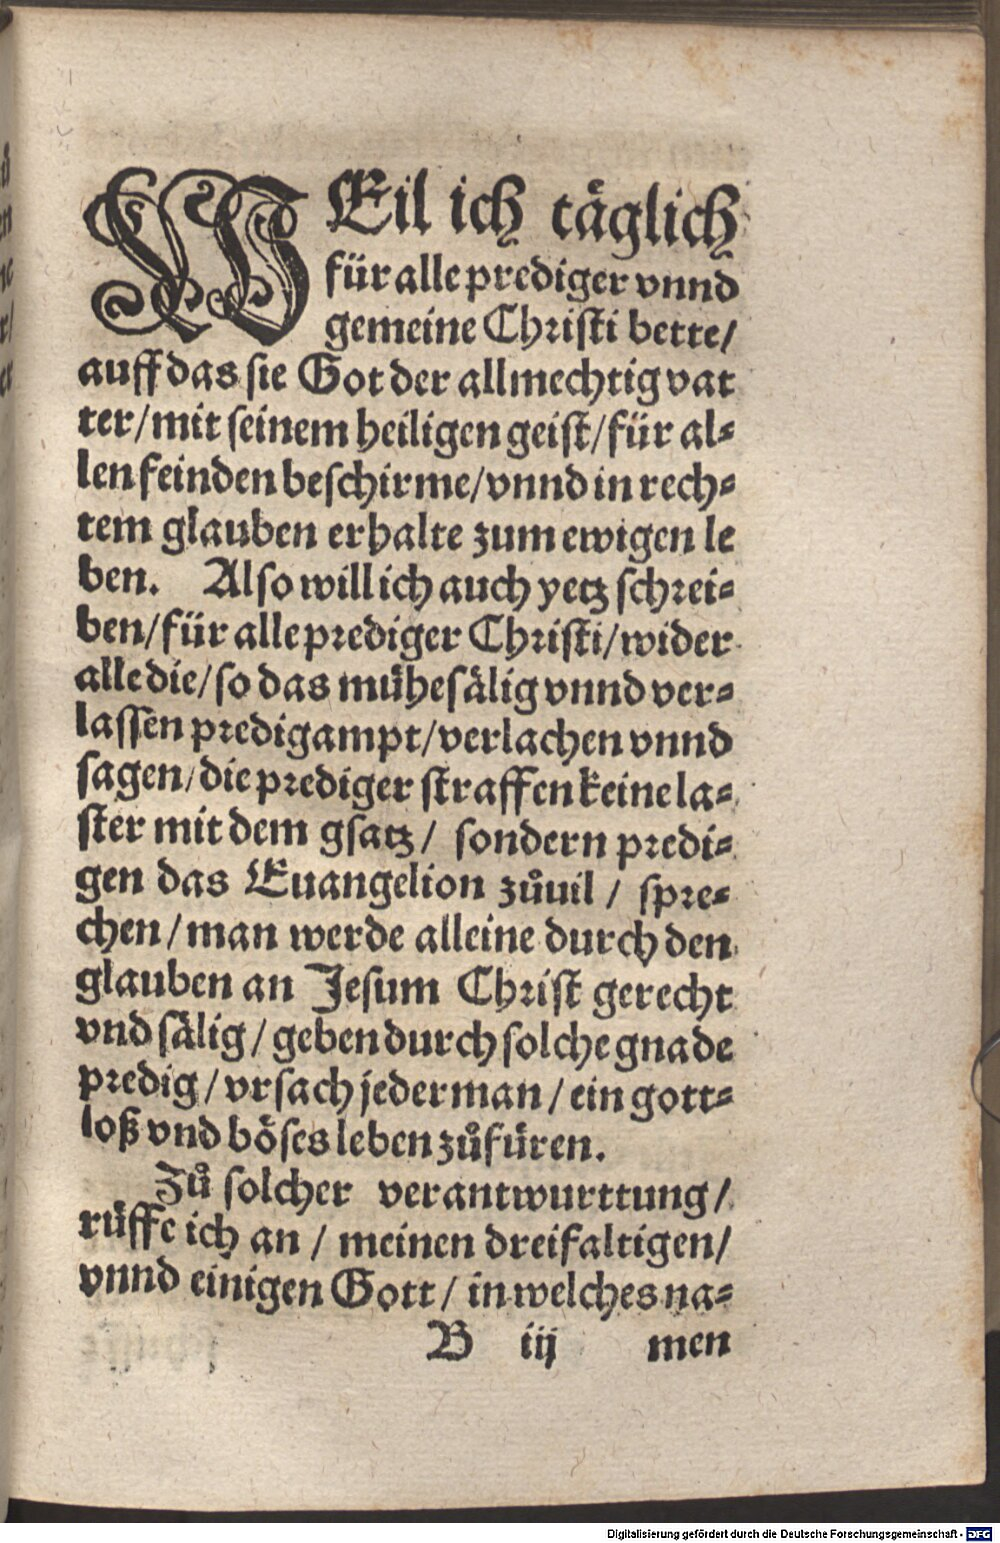 WEil ich täglich
für alle prediger vnnd
gemeine Christi bette/
auff das sie Got der allmechtig vat
ter/mit seinem heiligen geist/für al⸗
len feinden beschirme/vnnd in rech⸗
tem glauben erhalte zum ewigen le
ben. Also will ich auch yetz schrei⸗
ben/für alle prediger Christi/wider
alle die/so das mühesälig vnnd ver⸗
lassen predigampt/verlachen vnnd
sagen/die prediger straffen keine la⸗
ster mit dem gsatz/ sondern predi⸗
gen das Euangelion zůuil/ spre⸗
chen/man werde alleine durch den
glauben an Jesum Christ gerecht
vnd sälig/geben durch solche gnade
predig/vrsach jederman/ein gott⸗
loß vnd böses leben zůfüren.
Zů solcher verantwurttung/
rüffe ich an/ meinen dreifaltigen/
vnnd einigen Gott/ in welches na⸗
B iij men
Digitalisierung gefördert durch die Deutsche Forschungsgemeinschaft - DFG